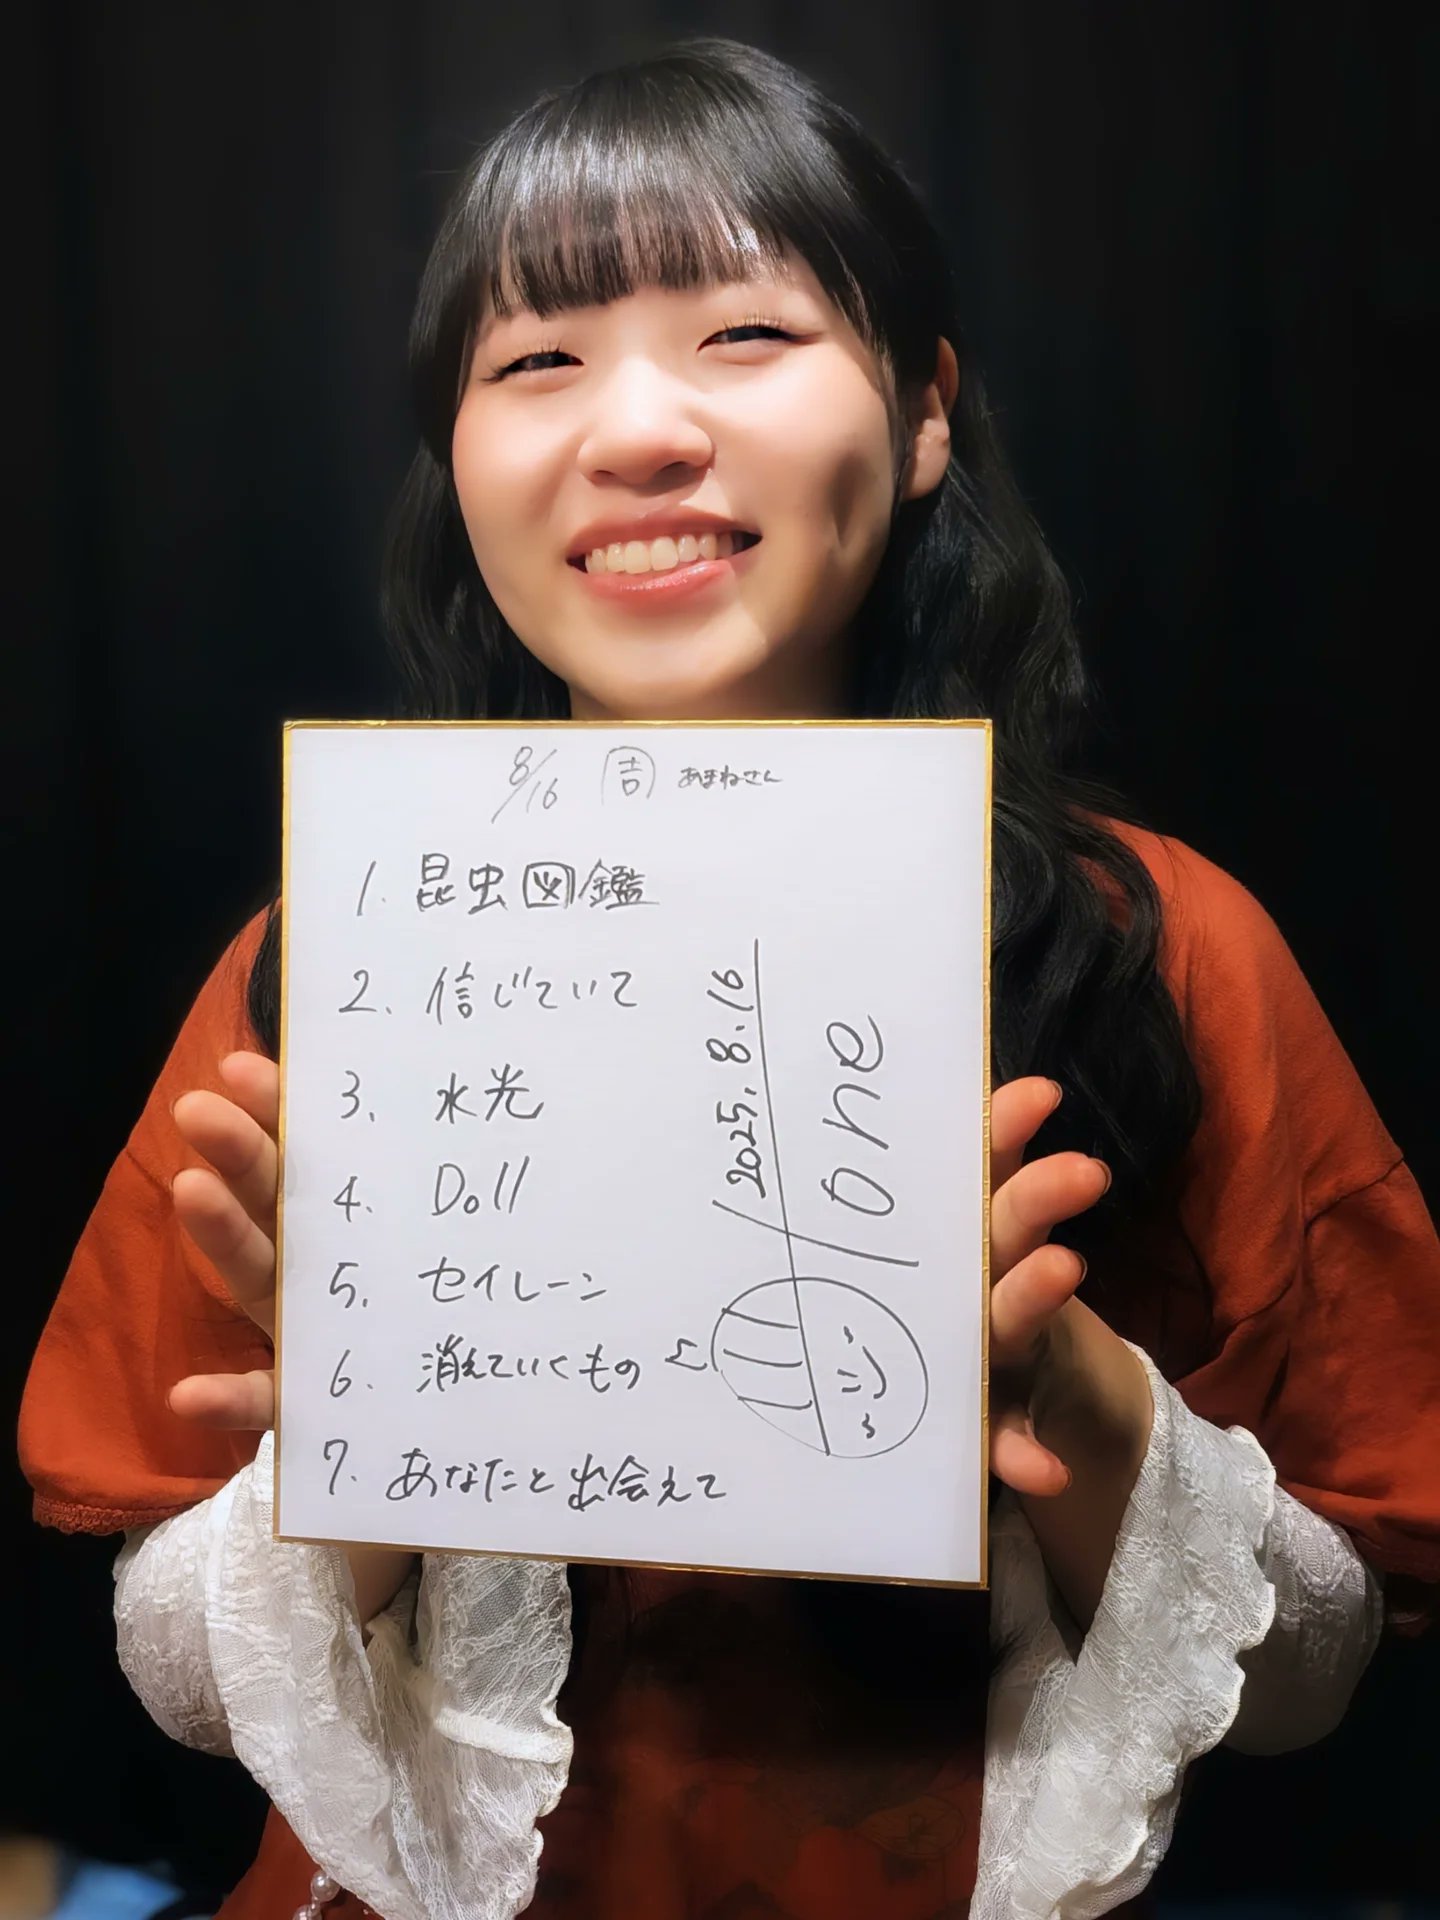 8/16 周 あまねさん
1. 昆虫図鑑
2. 信じていて
3. 水光
4. Doll
5. セイレーン
6. 消えていくもの
7. あなたと出会えて
2025.8.16
one